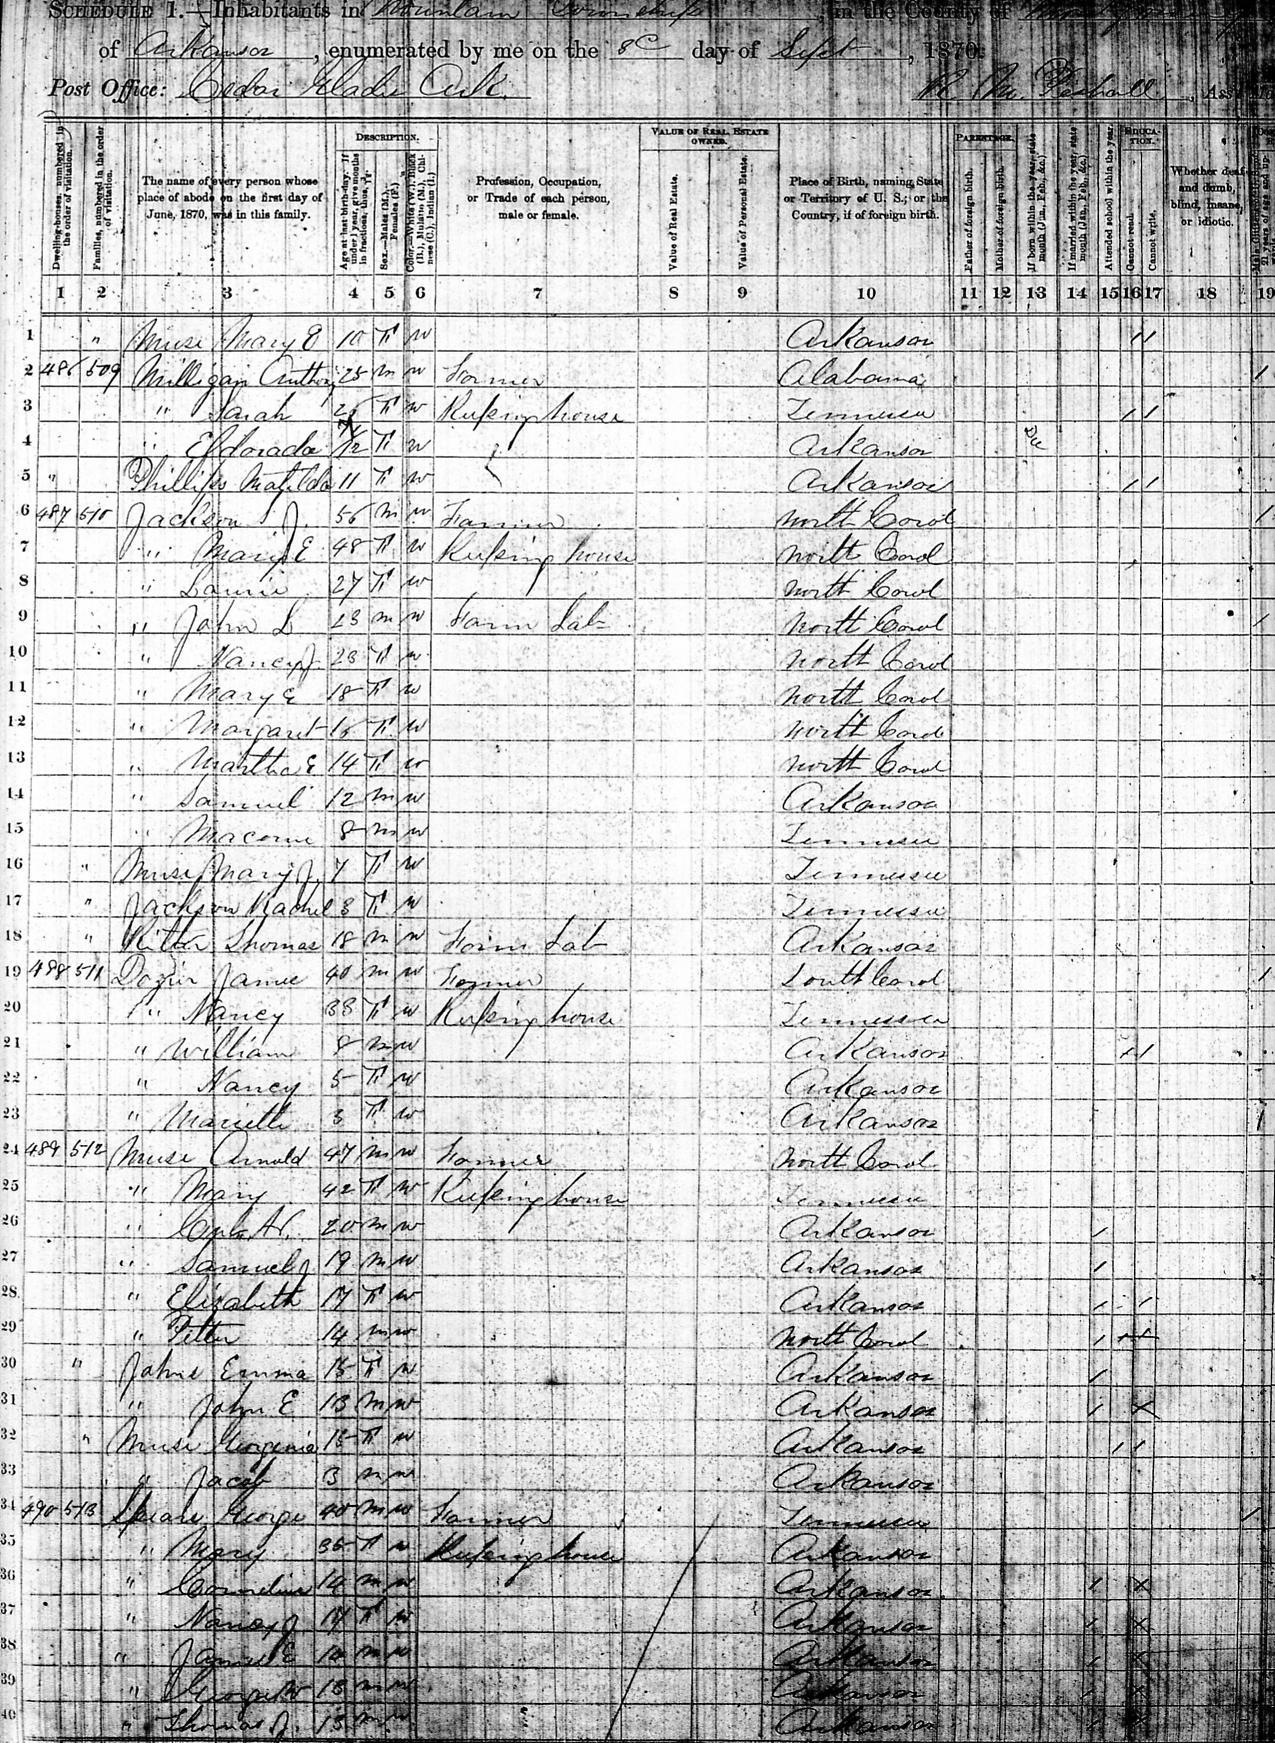 SCHEDULE 1.—Inhabitants in Mountain Township, in the County of
of Arkansas, enumerated by me on the 8th day of Sept, 1870.
Post Office: Cedar Glades Ark.
Dwelling-houses, numbered in the order of visitation.
Families, numbered in the order of visitation.
The name of every person whose place of abode on the first day of June, 1870, was in this family.
DESCRIPTION.
Age at last birth-day. If under 1 year, give months in fractions, thus, 3/12
Sex.—Males (M.), Females (F.)
Color.—White (W.), Black (B.), Mulatto (M.), Chinese (C.), Indian (I.)
Profession, Occupation, or Trade of each person, male or female.
VALUE OF REAL ESTATE OWNED.
Value of Real Estate.
Value of Personal Estate.
Place of Birth, naming State or Territory of U. S.; or the Country, if of foreign birth.
PARENTAGE.
Father of foreign birth.
Mother of foreign birth.
If born within the year, state month (Jan., Feb., &c.)
If married within the year, state month (Jan., Feb., &c.)
Attended school within the year.
EDUCATION.
Cannot read.
Cannot write.
Whether deaf and dumb, blind, insane, or idiotic.
1 2 3 4 5 6 7 8 9 10 11 12 13 14 15 16 17 18 19
1 " Muse Mary E 10 F W Arkansas 1 1
2 486 509 Milligan Anthony 25 M W Farmer Alabama 1
3 " Sarah F W Keeping house Tennessee 1 1
4 " Eldorada F W Arkansas Dec
5 " Phillips Matilda 11 F W Arkansas 1 1
6 487 510 Jackson J. 56 M W Farmer North Carol 1
7 " Mary E 48 F W Keeping house North Carol
8 " 27 F W North Carol
9 " John L 23 M W Farm Lab North Carol 1
10 " Nancy J. 23 F W North Carol
11 " Mary E 18 F W North Carol
12 " Margaret 16 F W North Carol
13 " Martha E 14 F W North Carol
14 " Samuel 12 M W Arkansas
15 " 8 M W Tennessee
16 " Muse Mary J. 7 F W Tennessee
17 " Jackson Rachel 3 F W Tennessee
18 " Ritter Thomas 18 M W Farm Lab Arkansas
19 488 511 Dozier James 40 M W Farmer South Carol 1
20 " Nancy 38 F W Keeping house Tennessee
21 " William 8 M W Arkansas
22 " Nancy 5 F W Arkansas
23 " 3 F W Arkansas 1
24 489 512 Muse Arnold 47 M W Farmer North Carol
25 " Mary 42 F W Keeping house Tennessee
26 " 20 M W Arkansas 1
27 " Samuel J 19 M W Arkansas 1
28 " Elizabeth 17 F W Arkansas 1 1 1
29 " 14 M W North Carol 1
30 " Emma 15 F W Arkansas 1
31 " John E 13 M W Arkansas 1 X
32 " Muse Georgenia 15 F W Arkansas 1 1
33 " Jacob 3 M W Arkansas
34 490 513 George 40 M W Farmer Tennessee 1
35 " Mary 35 F W Keeping house Arkansas
36 " Cornelius 14 M W Arkansas 1 X
37 " Nancy J 17 F W Arkansas 1 X
38 " James E M W Arkansas 1 X
39 " George W 13 M W Arkansas 1 X
40 " Thomas J. M W Arkansas